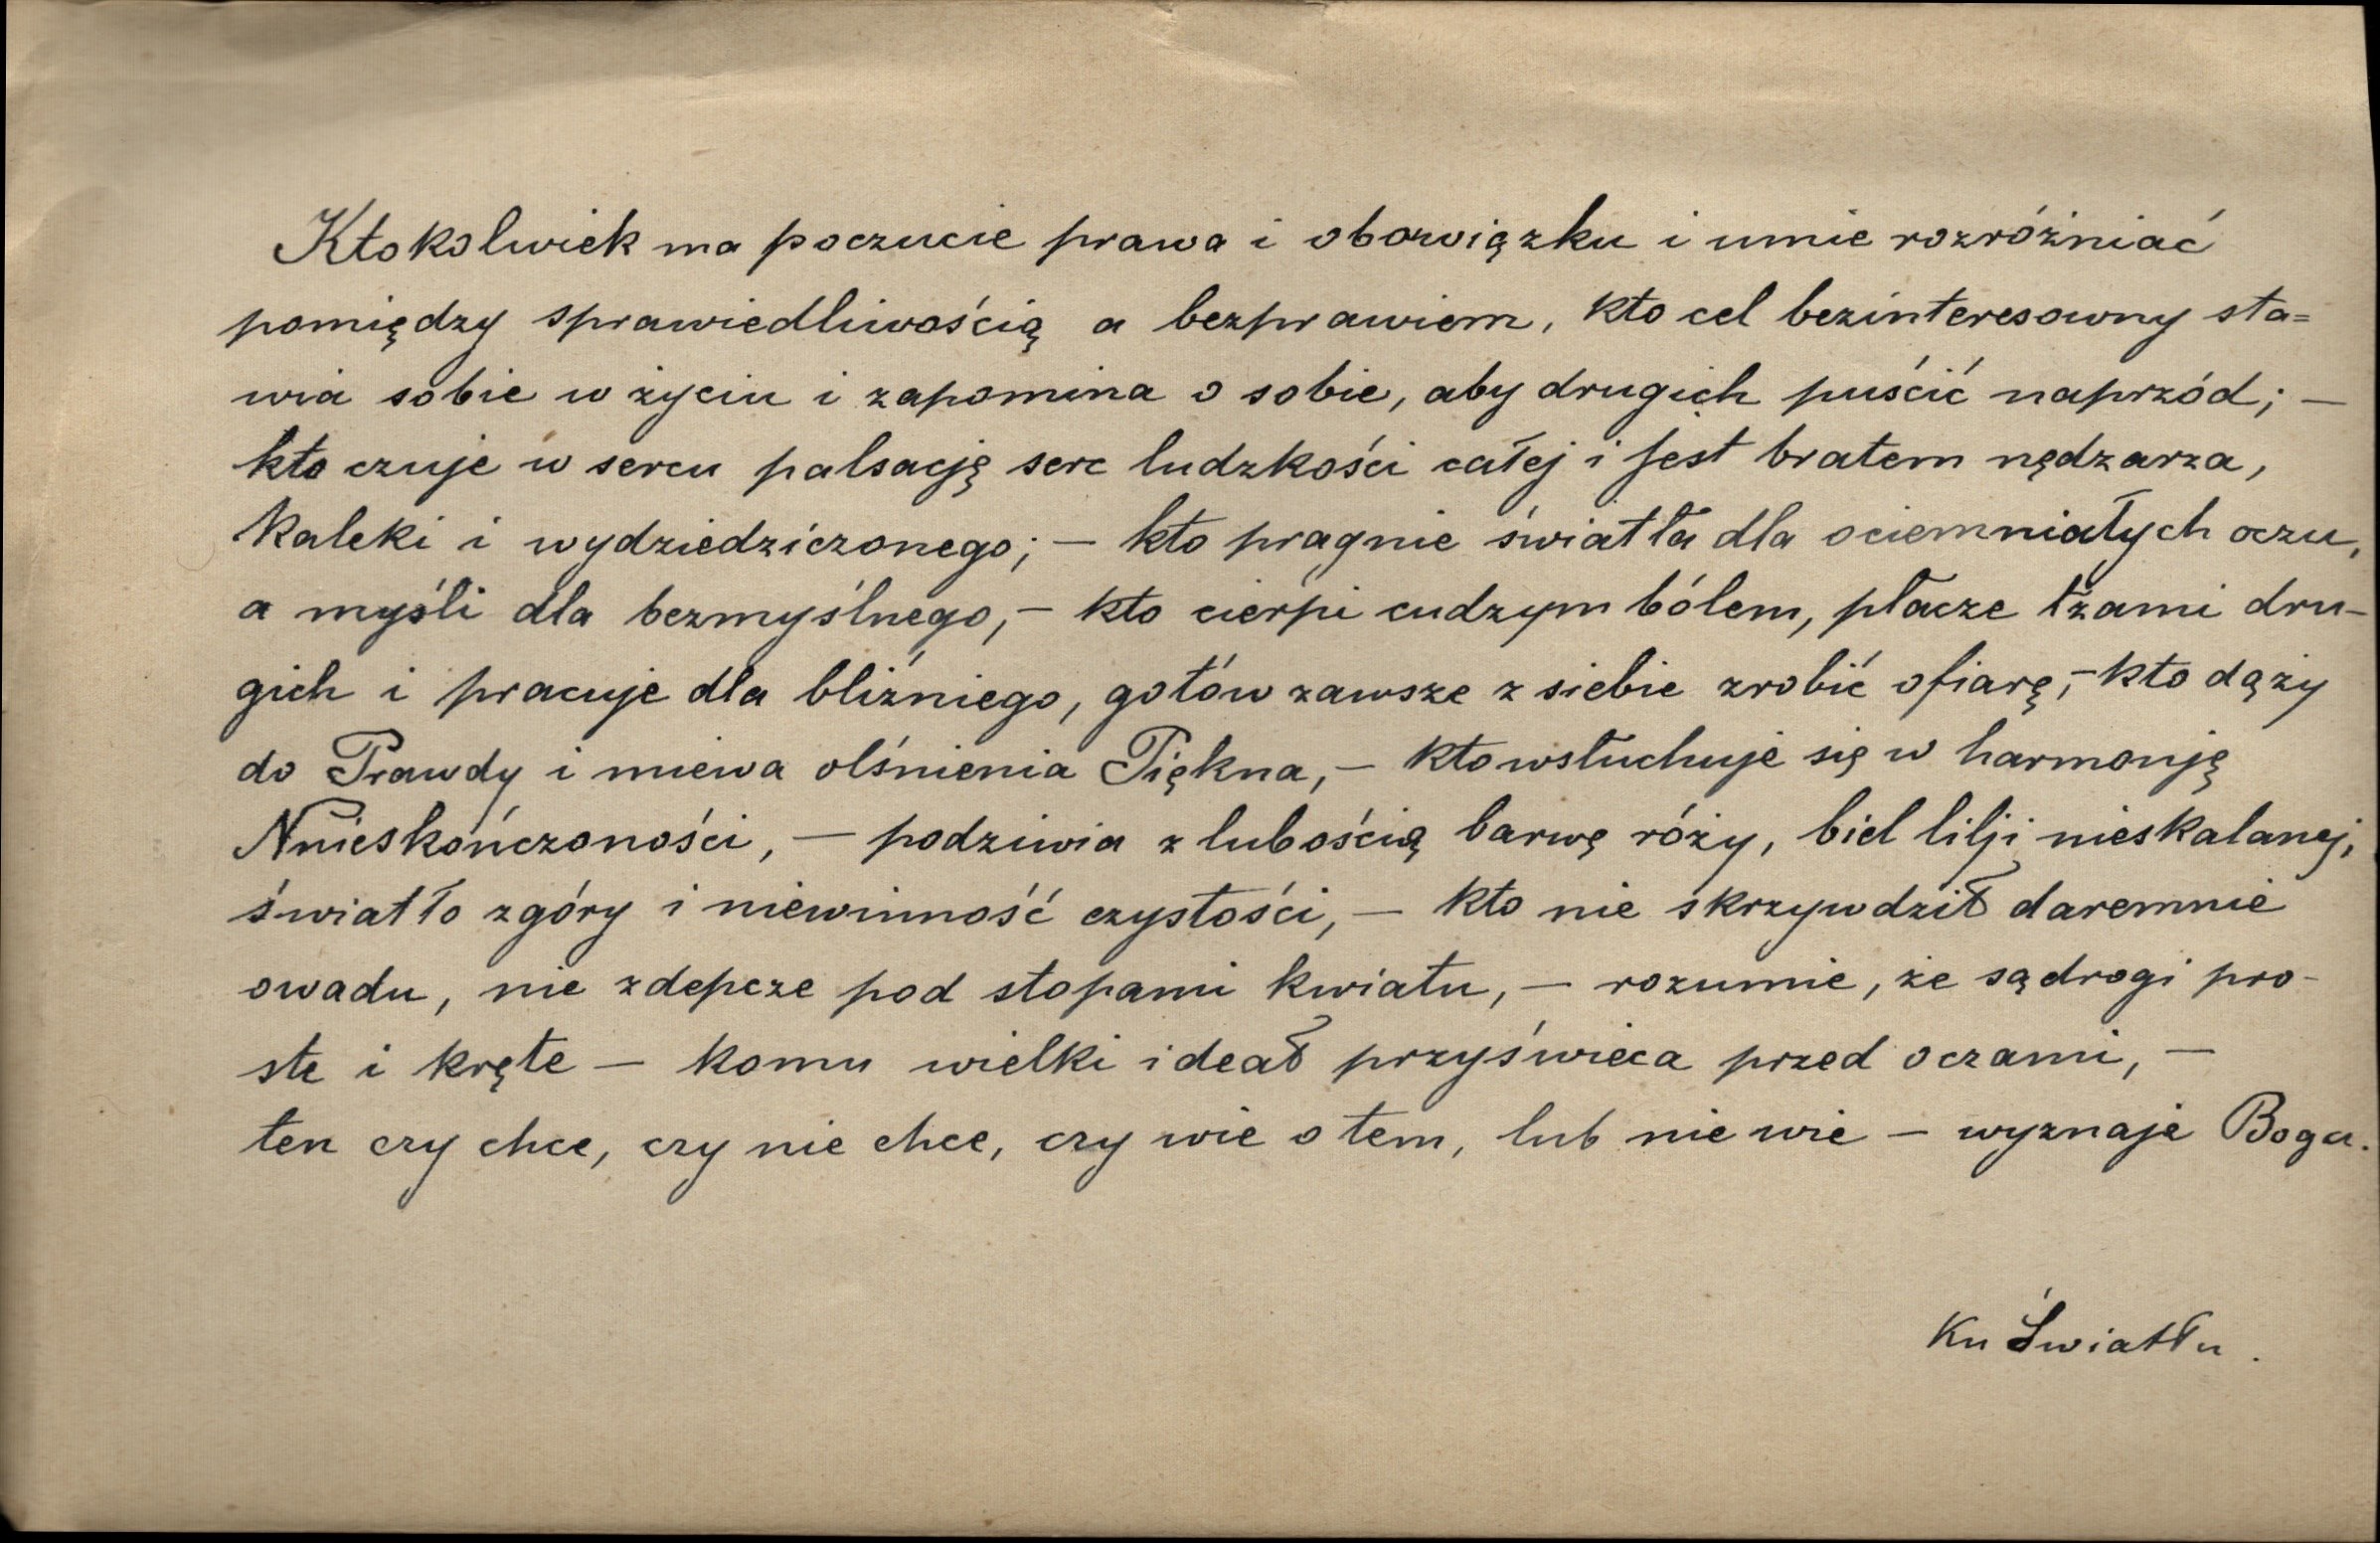 Ktokolwiek ma poczucie prawa i obowiązku i umie rozróżniać
pomiędzy sprawiedliwością a bezprawiem, kto cel bezinteresowny sta=
wia sobie w życiu i zapomina o sobie, aby drugich puścić naprzód; —
kto czuje w sercu palsację serc ludzkości całej i jest bratem nędzarza,
kaleki i wydziedziczonego; — kto pragnie światła dla ociemniałych oczu,
a myśli dla bezmyślnego, — kto cierpi cudzym bólem, płacze łzami dru-
gich i pracuje dla bliźniego, gotów zawsze z siebie zrobić ofiarę, — kto dąży
do Prawdy i miewa olśnienia Piękna, — kto wsłuchuje się w harmonję
Nnieskończoności, — podziwia z lubością barwę róży, biel lilji nieskalanej,
światło zgóry i niewinność czystości, — kto nie skrzywdził daremnie
owadu, nie zdepcze pod stopami kwiatu, — rozumie, że są drogi pro-
ste i kręte — komu wielki ideał przyświeca przed oczami, —
ten czy chce, czy nie chce, czy wie o tem, lub nie wie — wyznaje Boga.
Ku Światłu.